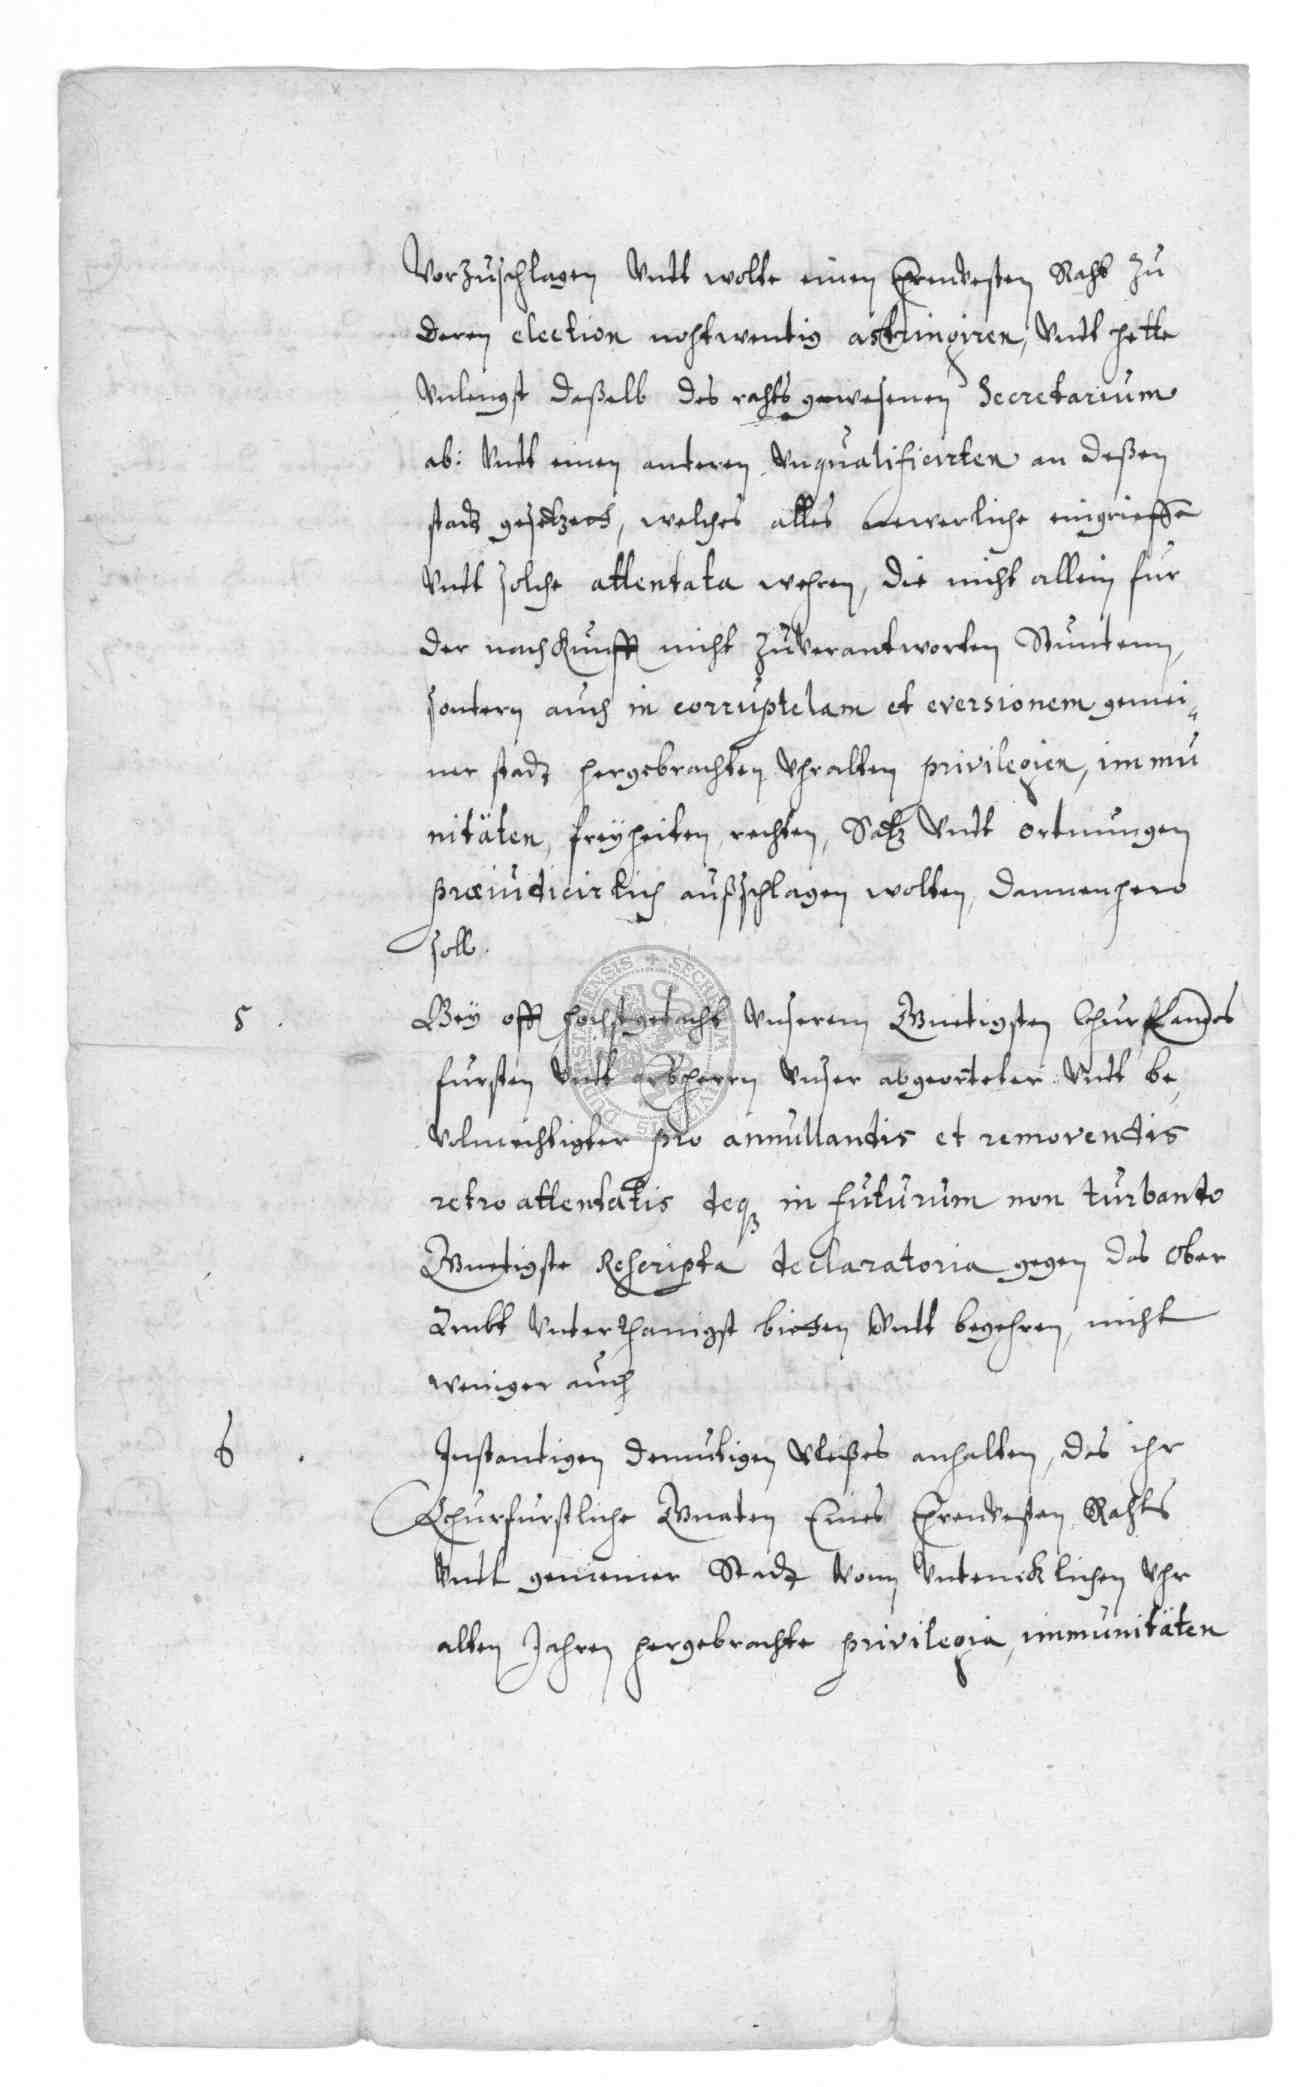 Vorzuschlagen Vndt wolte einen Ehrenvesten Raht zu
deren election nohtwentig astringiren, Vndt hette
Vnlengst daßelb des rahts gewesenen Secretarium
ab: Vndt einen anderen Vnqualificirten an deßen
stadt gesetzet, welches alles newerliche eingrieffe
Vndt solche attentata wehren, die nicht allein fur
der nachkunfft nicht zuverantworten Stunten,
sontern auch in corruptelam et eversionem gemei„
ner stadt hergebrachten Vhralten privilegien, immu
nitäten, freyheiten, rechten, Satz Vndt ortnungen
præiudicirlich außschlagen wolten, dannenhero
soll.
5. Bey offt hochstgedacht Vnserem Gnetigsten Churf Landes
fursten Vndt erbherrn Vnser abgeorteter Vndt be„
Volmechtigter pro annullandis et removendis
retro attentatis deq in futurum non turbando
Gnetigste Rescripta declaratoria gegen das Ober
Ambt Vnterthanigst bieten Vndt begehren, nicht
weniger auch
6. Instantigen demutigen Vleißes anhalten, das ihr
Churfurstliche Gnaten Eines Ehrenvesten Rahts
Vndt gemeiner Stadt vonn Vntencklichen Vhr
alten Jahren hergebrachte privilegia, immunitäten